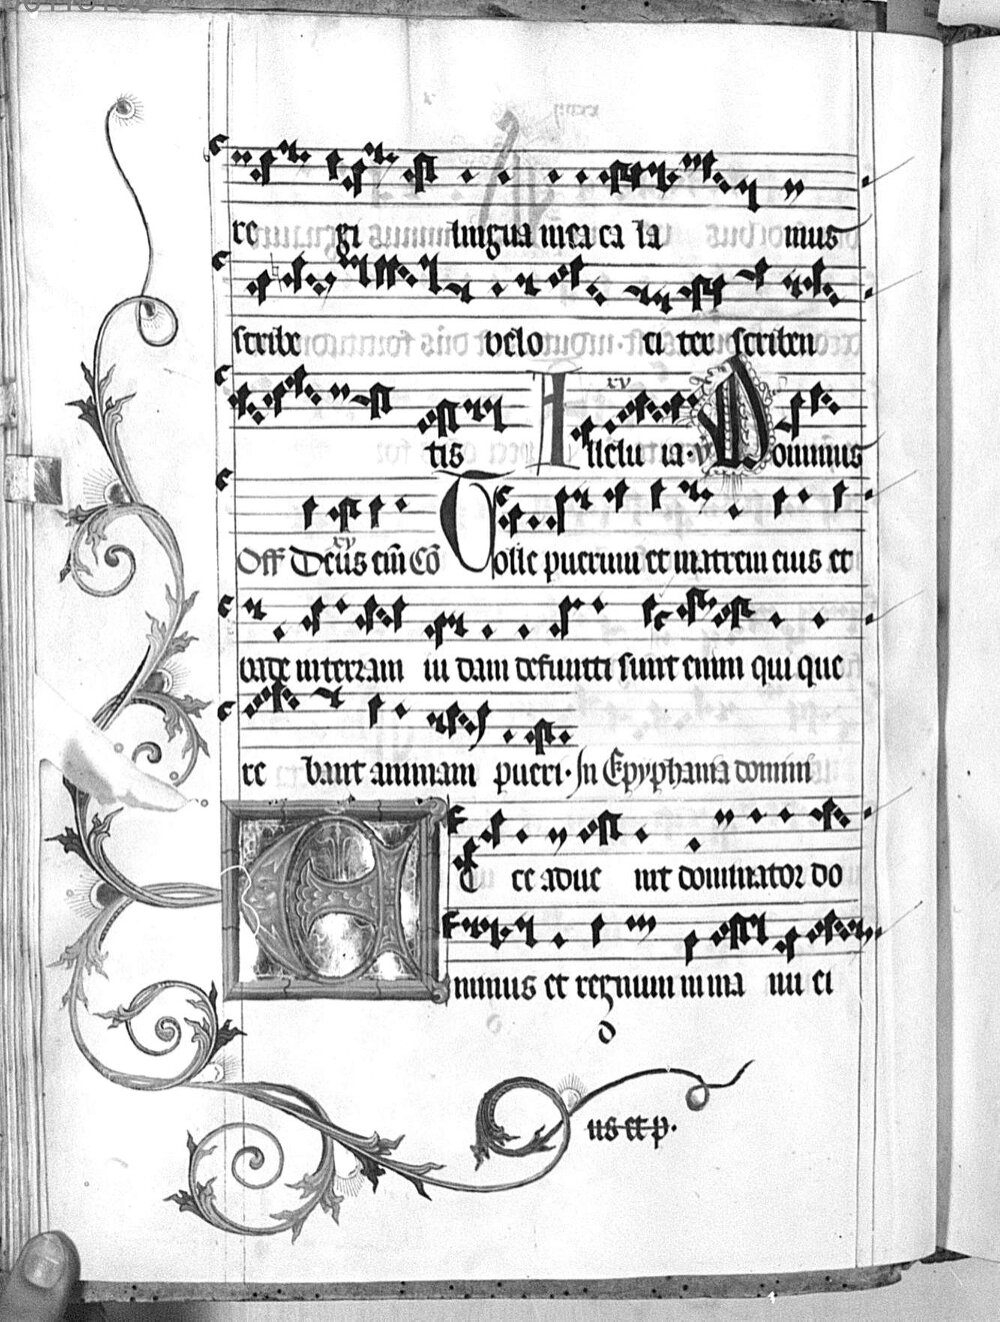 re gi lingua mea ca la mus
scribe velo ci ter scriben
xv
tis Alleluia. v Dominus
xv
Off Deus em̄ Cō Tolle puerum et matrem eius et
vade in terram iu dam defuncti sunt enim qui que
re bant animam pueri. In Epyphania domini
Ecce adue nit dominator do
minus et regnum in ma nu ei
us et p.